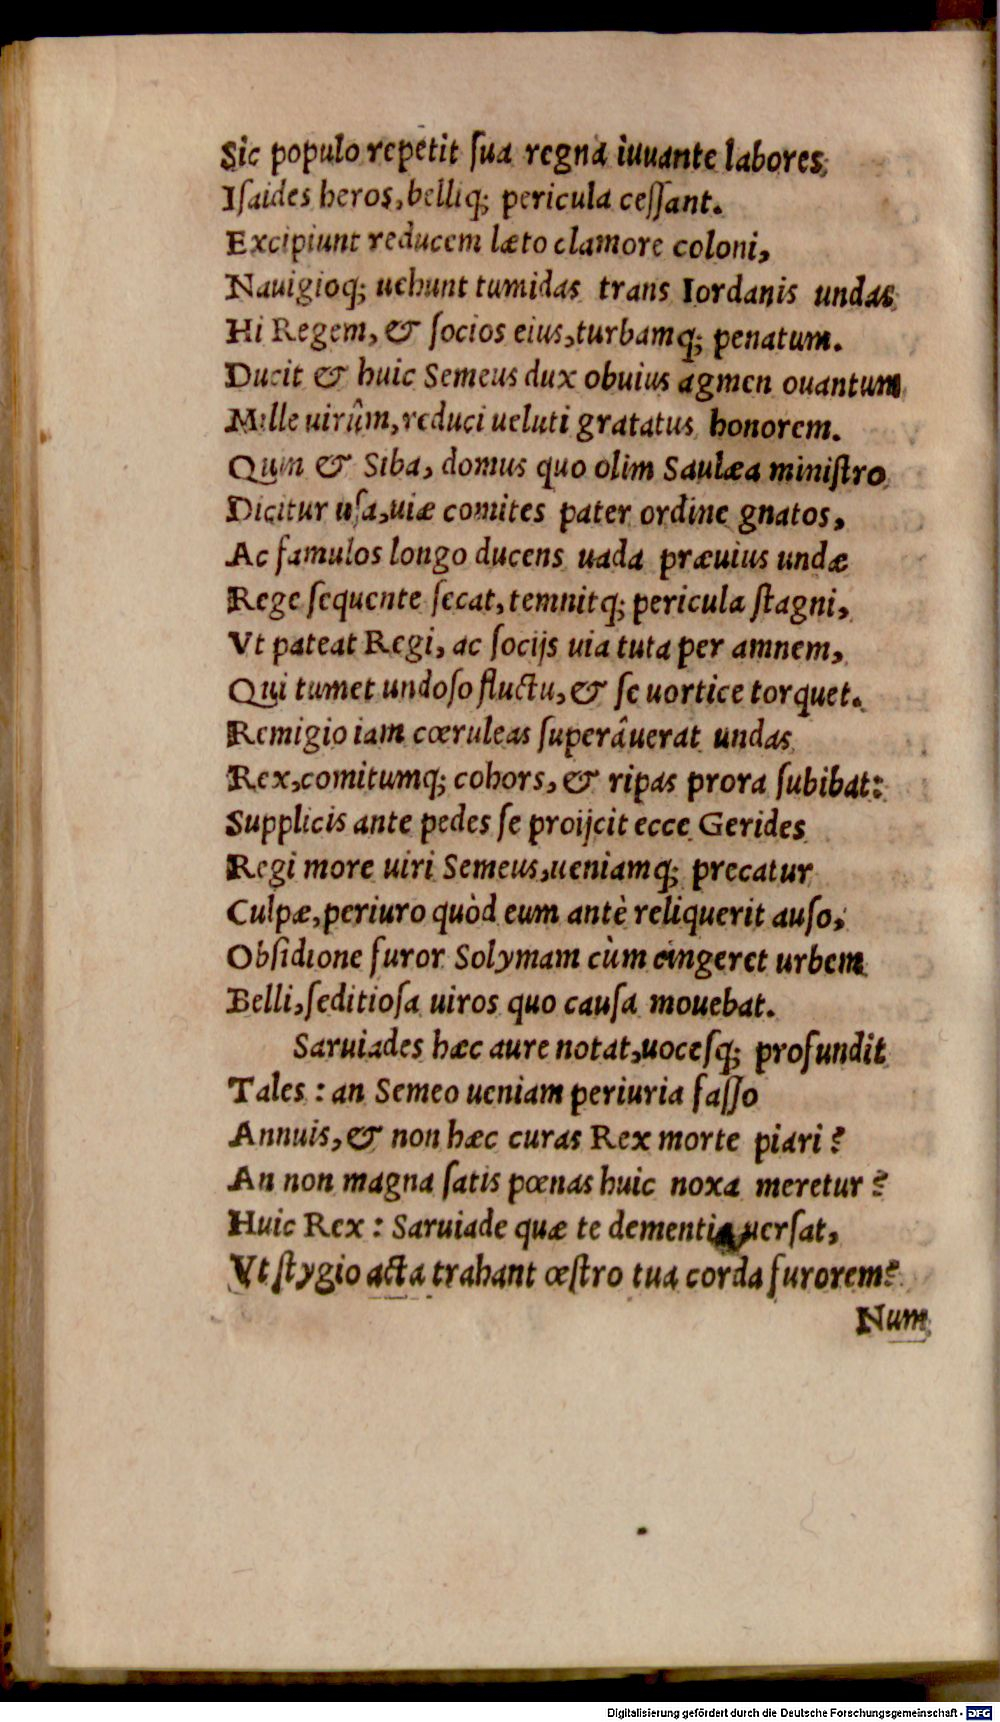 Sic populo repetit ſua regna iuuante labores,
Iſaides heros, belliq; pericula ceſſant.
Excipiunt reducem læto clamore coloni,
Nauigioq; uehunt tumidas trans Iordanis undas
Hi Regem, & ſocios eius, turbamq; penatum.
Ducit & huic Semeus dux obuius agmen ouantum
Mille uirûm, reduci ueluti gratatus honorem.
Quin & Siba, domus quo olim Saulæa miniſtro
Dicitur uſa, uiæ comites pater ordine gnatos,
Ac famulos longo ducens uada præuius undæ
Rege ſequente ſecat, temnitq; pericula ſtagni,
Vt pateat Regi, ac ſocijs uia tuta per amnem,
Qui tumet undoſo fluctu, & ſe uortice torquet.
Remigio iam cœruleas ſuperâuerat undas
Rex, comitumq; cohors, & ripas prora ſubibat:
Supplicis ante pedes ſe proijcit ecce Gerides
Regi more uiri Semeus, ueniamq; precatur
Culpæ, periuro quòd eum antè reliquerit auſo,
Obſidione furor Solymam cùm cingeret urbem
Belli, ſeditioſa uiros quo cauſa mouebat.
Saruiades hæc aure notat, uoceſq; profundit
Tales : an Semeo ueniam periuria faſſo
Annuis, & non hæc curas Rex morte piari?
An non magna ſatis pœnas huic noxa meretur?
Huic Rex : Saruiade quæ te dementia uerſat,
Vt ſtygio acta trahant œſtro tua corda furorem?
Num
Digitalisierung gefördert durch die Deutsche Forschungsgemeinschaft - DFG